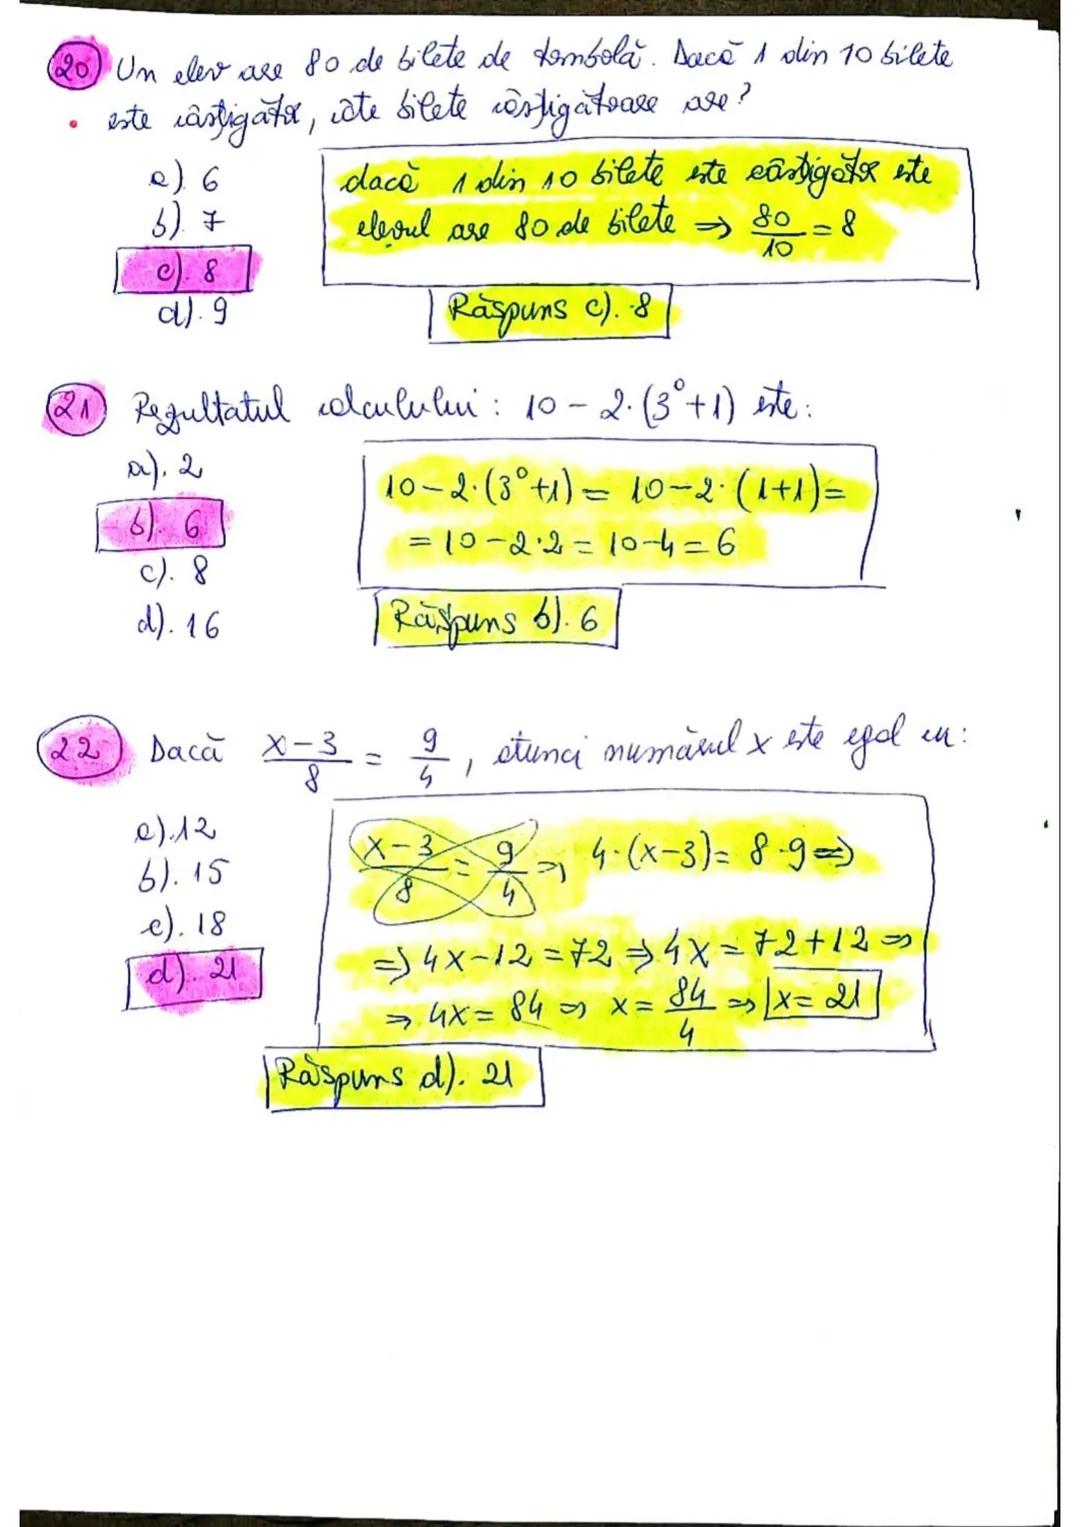 20 Un elev are 80 de bilete de tombolă. Dacă 1 din 10 bilete
este câștigător, câte bilete câștigătoare are?
a). 6
b). 7
c). 8
d). 9
dacă 1 din 10 bilete este câștigător este
elevul are 80 de bilete ⇒ 80/10 = 8
Răspuns c). 8
21 Rezultatul calculului: 10 - 2·(3⁰+1) este:
a). 2
b). 6
c). 8
d). 16
10-2·(3⁰+1) = 10-2·(1+1)=
= 10-2·2 = 10-4 = 6
Răspuns b). 6
22 Dacă x-3/8 = 9/4, atunci numărul x este egal cu:
a). 12
b). 15
c). 18
d). 21
x-3/8 = 9/4 ⇒ 4·(x-3) = 8·9 ⇒
⇒ 4x-12 = 72 ⇒ 4x = 72+12 ⇒
⇒ 4x = 84 ⇒ x = 84/4 ⇒ x = 21
Răspuns d). 21